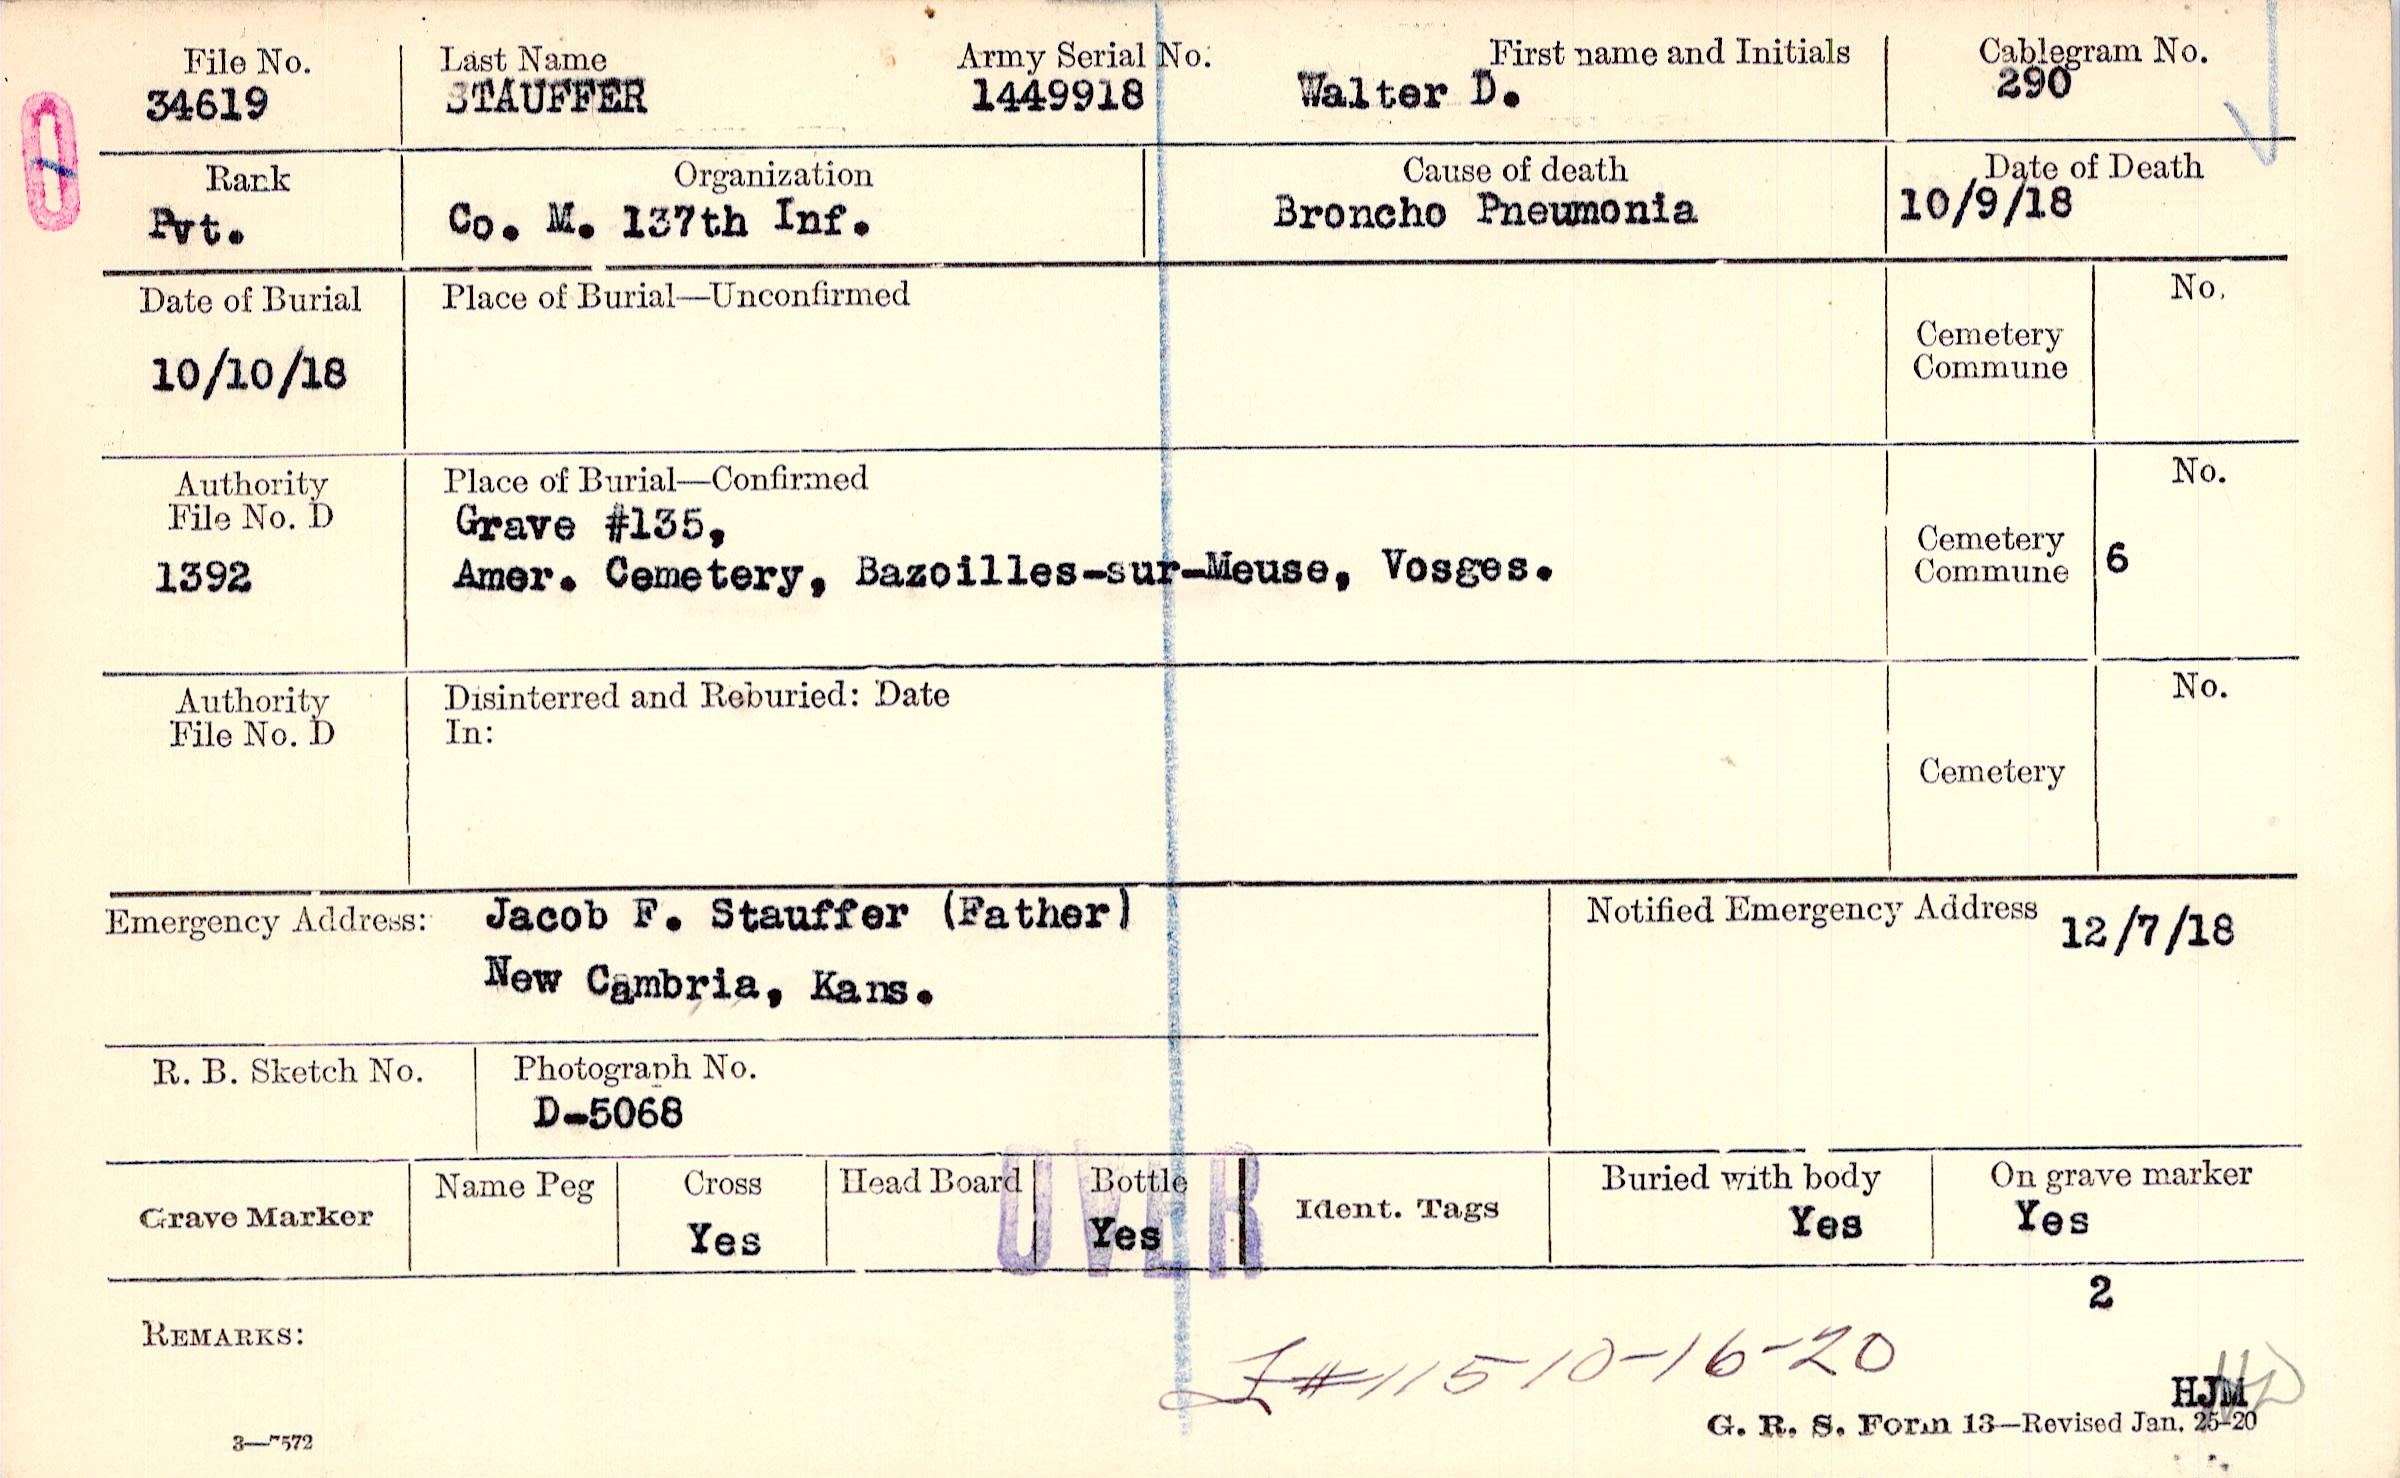 File No.
34619
Last Name
STAUFFER
Army Serial No.
1449918
First name and Initials
Walter D.
Cablegram No.
290
Rank
Pvt.
Organization
Co. M. 137th Inf.
Cause of death
Broncho Pneumonia
Date of Death
10/9/18
Date of Burial
10/10/18
Place of Burial—Unconfirmed
Cemetery
Commune
No.
Authority
File No. D
1392
Place of Burial—Confirmed
Grave #135,
Amer. Cemetery, Bazoilles-sur-Meuse, Vosges.
Cemetery
Commune
No.
6
Authority
File No. D
Disinterred and Reburied: Date
In:
Cemetery
No.
Emergency Address: Jacob F. Stauffer (Father)
New Cambria, Kans.
Notified Emergency Address 12/7/18
R. B. Sketch No.
Photograph No.
D-5068
Grave Marker
Name Peg
Cross
Yes
Head Board
Bottle
Yes
OVER
Ident. Tags
Buried with body
Yes
On grave marker
Yes
2
REMARKS:
#115 10-16-20
HJM
3—7572
G. R. S. Form 13—Revised Jan. 25-20